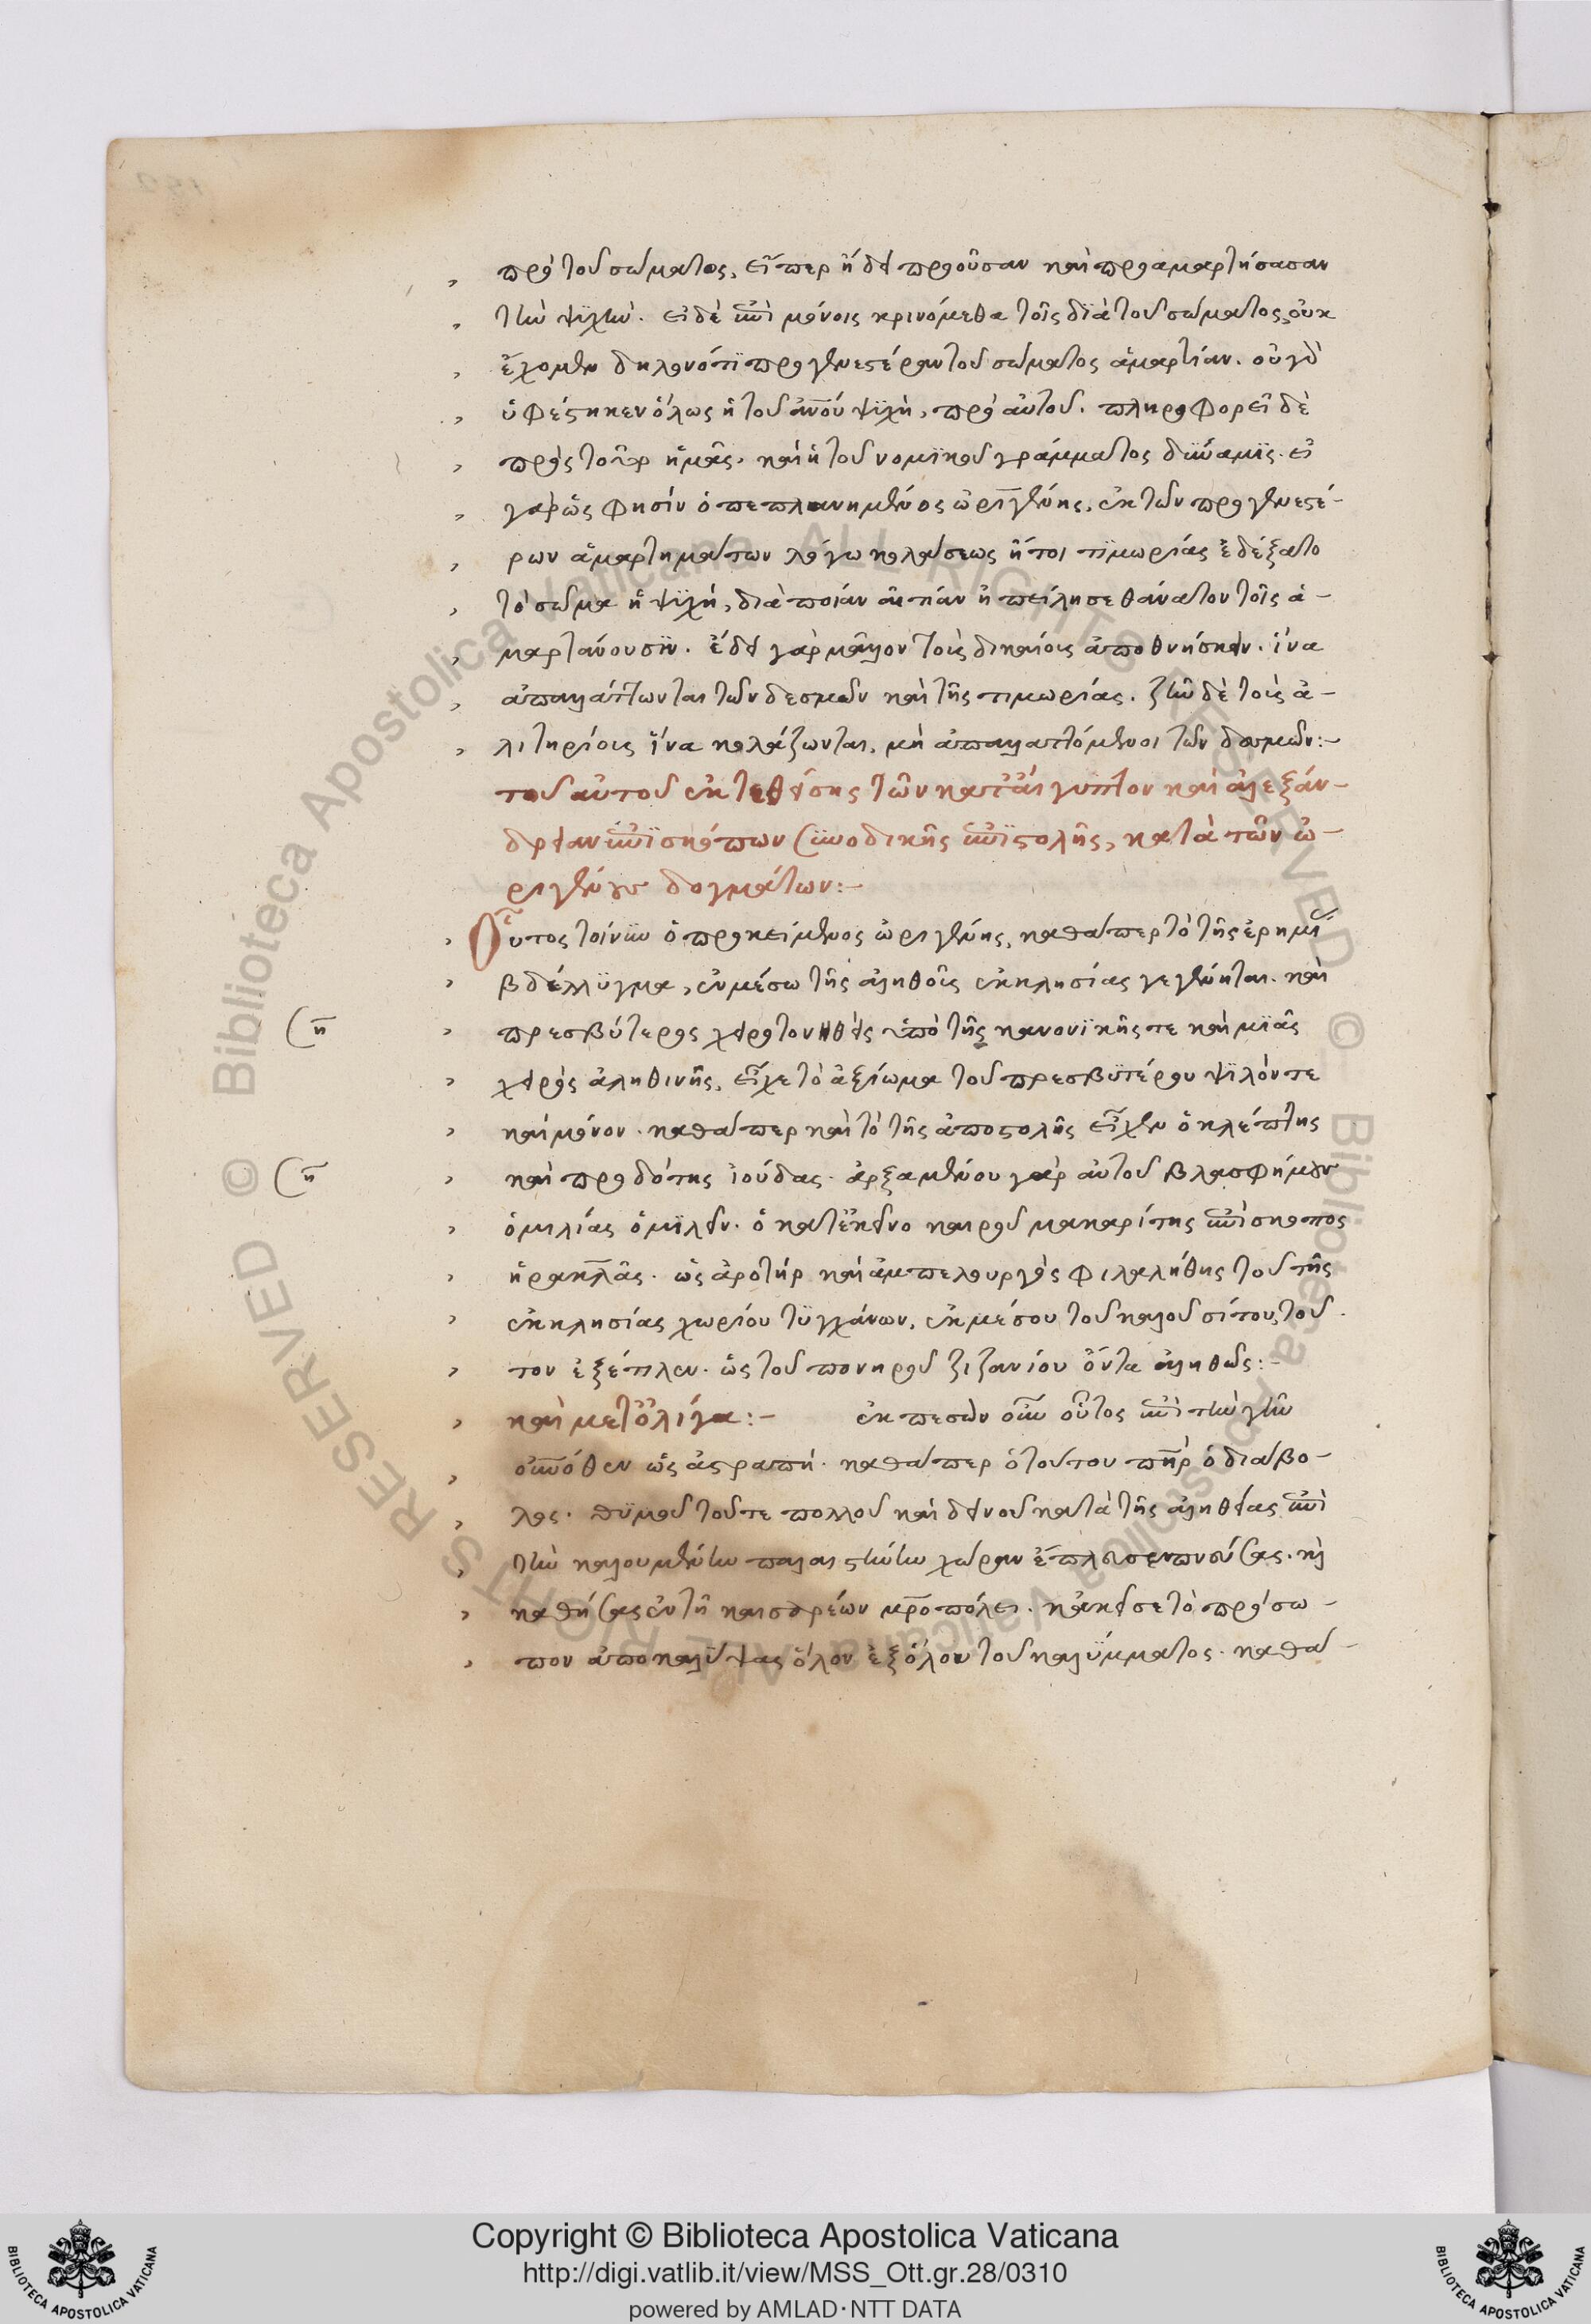 πρὸ τοῦ σώματος, εἴπερ ἤδει προοῦσαν καὶ προαμαρτήσασαν
τὴν ψϋχήν. εἰ δὲ ἐπὶ μόνοις κρινόμεθα τοῖς διὰ τοῦ σώματος, οὐκ
ἔχομεν δηλονότι προγενεστέραν τοῦ σώματος ἁμαρτίαν. οὐ γὰρ
ὑφέστηκεν ὅλως ἡ τοῦ ἀνου ψϋχὴ, πρὸ αὐτοῦ. πληροφορεῖ δὲ
πρὸς τοῦτο ἡμᾶς, καὶ ἡ τοῦ νομϊκοῦ γράμματος δύναμϊς. εἰ
γὰρ ὥς φησίν ὁ πεπλανημένος ὠριγένης, ἐκ τῶν προγενεστέ-
ρων ἁμαρτημάτων λόγω κολάσεως ἤτοι τϊμωρίας ἐδέξατο
τὸ σῶμα ἡ ψϋχή, διὰ ποιάν αἰτίαν ἠπείλησε θάνατον τοῖς ἁ-
μαρτάνουσϊν. ἔδει γὰρ μᾶλλον τοὺς δικαίους ἀποθνήσκειν. ἵνα
ἀπαλλάττωνται τῶν δεσμῶν καὶ τῆς τιμωρίας. ζῆν δὲ τοὺς ἀ-
λιτηρίους ἵνα κολάζωνται, μὴ ἀπαλλαττόμενοι τῶν δεσμῶν:-
τοῦ αὐτοῦ ἐκ τεθείσης τῶν κατ' αἴγυπτον καὶ ἀλεξάν-
δρειαν ἐπϊσκόπων συνοδικῆς ἐπϊστολῆς, κατὰ τῶν ὠ-
ριγένους δογμάτων:-
Οὗτος τοίνυν ὁ προκείμενος ὠριγένης, καθάπερ τὸ τῆς ἐρημώ
βδέλλϋγμα, ἐν μέσω τῆς ἀληθοῦς ἐκκλησίας γεγένηται. καὶ
ση πρεσβύτερος χειροτονηθεὶς ὑπὸ τῆς κανονϊκῆς τε καὶ μϊᾶς
χειρὸς ἀληθινῆς, εἶχε τὸ ἀξίωμα τοῦ πρεσβϋτέρου ψϊλόν τε
καὶ μόνον. καθάπερ καὶ τὸ τῆς ἀποστολῆς εἶχεν ὁ κλέπτης
ση καὶ προδότης ἰούδας. ἀρξαμένου γὰρ αὐτοῦ βλασφήμους
ὁμιλίας ὁμϊλεῖν. ὁ κατ' ἐκεῖνο καιροῦ μακαρίτης ἐπίσκοπος
ἡρακλᾶς. ὡς ἀροτήρ καὶ ἀμπελουργὸς φιλαλήθης τοῦ τῆς
ἐκκλησίας χωρίου τϋγχάνων, ἐκ μέσου τοῦ καλοῦ σίτου, τοῦ
τον ἐξέτιλεν. ὡς τοῦ πονηροῦ ζιζανίου ὄντα ἀληθῶς:-
καὶ μετ' ὀλίγα:- ἐκπεσὼν οὖν οὗτος ἐπὶ τὴν γῆν
οὐνόθεν ὡς ἀστραπή. καθάπερ ὁ τούτου πηρ ὁ διάβο-
λος. θϋμοῦ τοῦτε πολλοῦ καὶ δεινοῦ κατὰ τῆς ἀληθείας ἐπὶ
τὴν καλουμένην παλαιστίνην χώραν ἔπλευσεν πνεύσας. καὶ
καθήσας ἐν τῆ καισαρέων μροπόλει. κἀκεῖσε τὸ πρόσω-
πον ἀποκαλύψας ὅλον ἐξ ὅλου τοῦ καλϋμματος. καθά-
Copyright © Biblioteca Apostolica Vaticana
http://digi.vatlib.it/view/MSS_Ott.gr.28/0310
powered by AMLAD·NTT DATA
BIBLIOTECA APOSTOLICA VATICANA
BIBLIOTECA APOSTOLICA VATICANA
© Biblioteca Apostolica Vaticana ALL RIGHTS RESERVED © Biblioteca Apostolica Vaticana ALL RIGHTS RESERVED